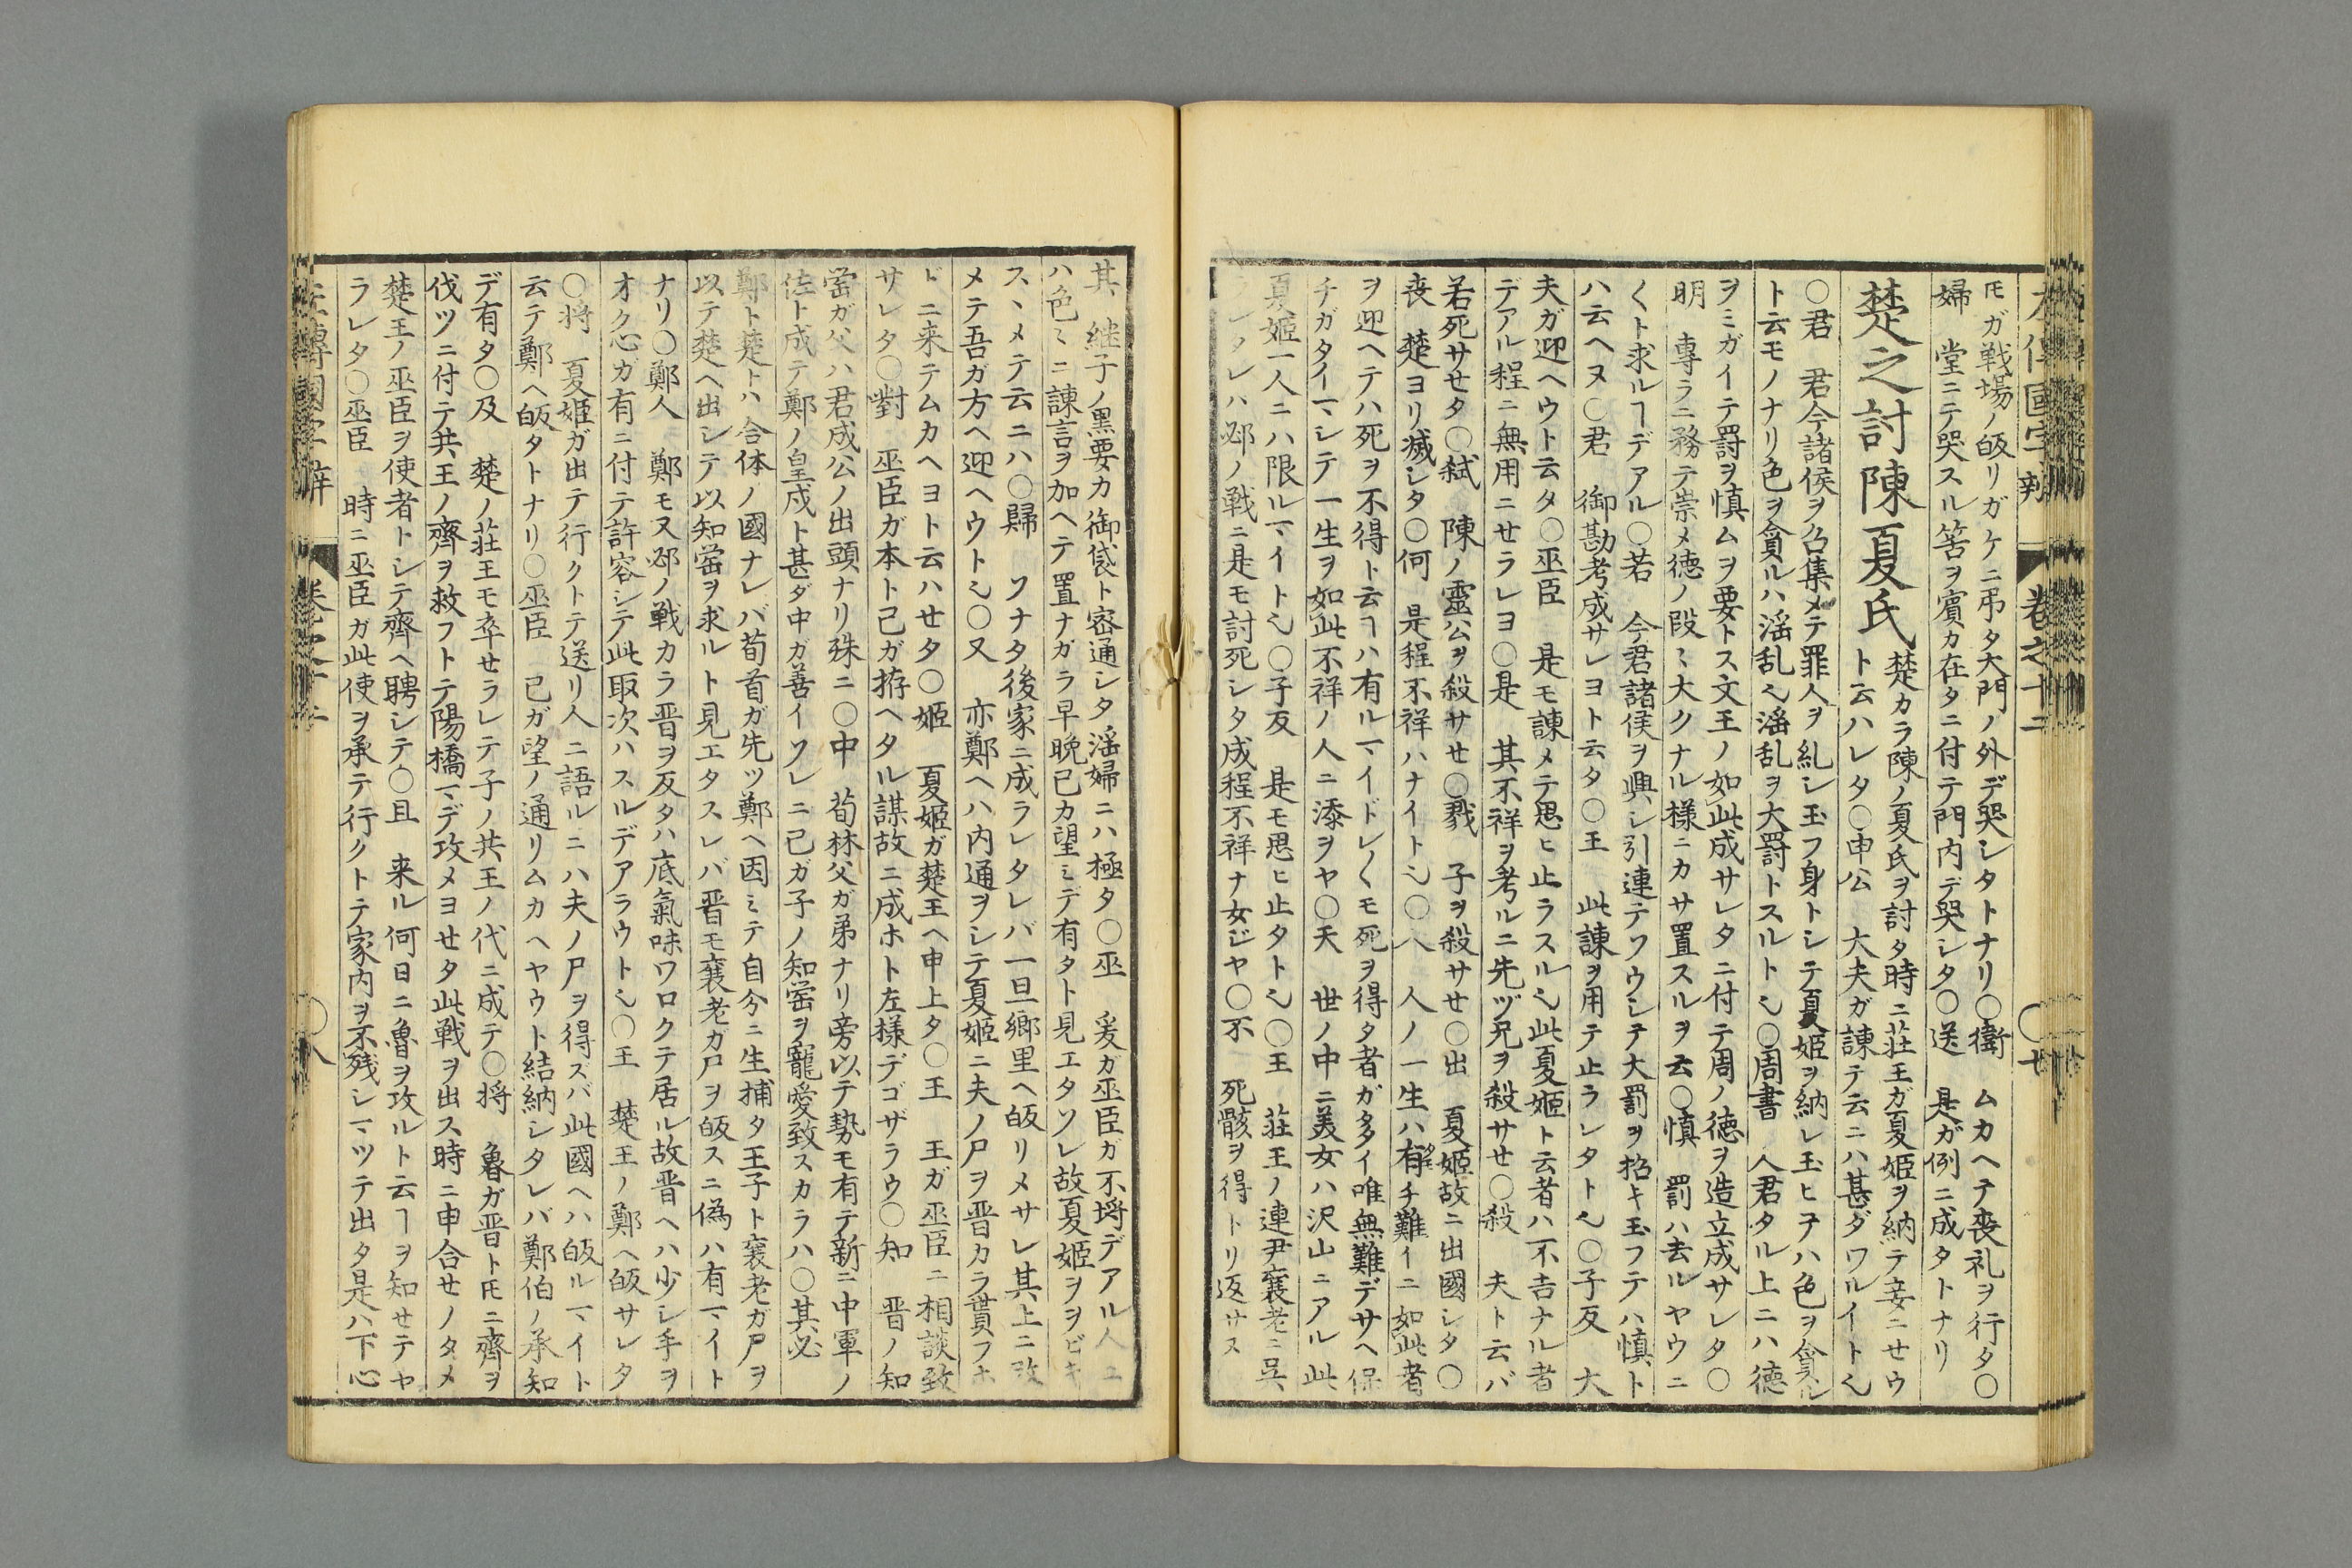 左傳國字辨 卷之十二 〇廿
𪜈ガ戦場ノ皈リガケニ弔タ大門ノ外デ哭シタトナリ〇衞 ムカヘテ喪礼ヲ行タ〇
婦 堂ニテ哭スル筈ヲ賓カ在タニ付テ門内デ哭シタ〇送 是ガ例ニ成タトナリ
楚之討陳夏氏 楚カラ陳ノ夏氏ヲ討タ時ニ荘王ガ夏姫ヲ納テ妾ニセウ
ト云ハレタ〇申公 大夫ガ諫テ云ニハ甚ダワルイト也
〇君 君今諸侯ヲ召集メテ罪人ヲ糺シ玉フ身トシテ夏姫ヲ納レ玉ヒテハ色ヲ貪ル
ト云モノナリ色ヲ貪ルハ滛乱也滛乱ヲ大罸トスルト也〇周書 人君タル上ニハ徳
ヲミガイテ罸ヲ慎ムヲ要トス文王ノ如此成サレタニ付テ周ノ徳ヲ造立成サレタ〇
明 専ラニ務テ崇メ徳ノ段〻大クナル様ニカサ置スルヲ云〇慎 罸ハ去ルヤウニ
〱ト求ルヿデアル〇若 今君諸侯ヲ興シ引連テソウシテ大罸ヲ招キ玉フテハ慎ト
ハ云ヘヌ〇君 御勘考成サレヨト云タ〇王 此諫ヲ用テ止ラレタト也〇子反 大
夫ガ迎ヘウト云タ〇巫臣 是モ諫メテ思ヒ止ラスル也此夏姫ト云者ハ不吉ナル者
デアル程ニ無用ニせラレヨ〇是 其不祥ヲ考ルニ先ヅ兄ヲ殺サせ〇殺 夫ト云バ
若死サせタ〇弑 陳ノ靈公ヲ殺サせ〇戮 子ヲ殺サせ〇出 夏姫故ニ出國シタ〇
喪 楚ヨリ滅シタ〇何 是程不祥ハナイト也〇人 人ノ一生ハ有チ難イニ如此者
ヲ迎ヘテハ死ヲ不得ト云ヿハ有ルマイドレ〱モ死ヲ得タ者ガ多イ唯無難デサヘ保
チガタイマシテ一生ヲ如此不祥ノ人ニ添ヲヤ〇天 世ノ中ニ美女ハ沢山ニアル此
夏姫一人ニハ限ルマイト也〇子反 是モ思ヒ止タト也〇王 荘王ノ連尹襄老ニ呉
レタレハ邲ノ戦ニ是モ討死シタ成程不祥ナ女ジヤ〇不 死骸ヲ得トリ返サス
其 継子ノ黒要カ御袋ト密通シタ滛婦ニハ極タ〇巫 爰ガ巫臣ガ不埒デアル人ニ
ハ色〻ニ諫言ヲ加ヘテ置ナガラ早晩已カ望ミデ有タト見エタソレ故夏姫ヲヲビキ
スヽメテ云ニハ〇歸 ソナタ後家ニ成ラレタレバ一旦郷里ヘ皈リメサレ其上ニ改
メテ吾ガ方ヘ迎ヘウト也〇又 亦鄭ヘハ内通ヲシテ夏姫ニ夫ノ尸ヲ晋カラ貰フホ
ドニ来テムカヘヨト云ハせタ〇姫 夏姫ガ楚王ヘ申上タ〇王 王ガ巫臣ニ相談致
サレタ〇對 巫臣ガ本ト己ガ拵ヘタル謀故ニ成ホト左様デゴザラウ〇知 晋ノ知
罃ガ父ハ君成公ノ出頭ナリ殊ニ〇中 荀林父ガ弟ナリ旁以テ勢モ有テ新ニ中軍ノ
佐ト成テ鄭ノ皇戌ト甚ダ中ガ善イソレニ己ガ子ノ知罃ヲ寵愛致スカラハ〇其必
鄭ト楚トハ合体ノ國ナレバ荀首ガ先ツ鄭ヘ因ミテ自分ニ生捕タ王子ト襄老ガ尸ヲ
以テ楚ヘ出シテ以知罃ヲ求ルト見エタスレバ晋モ襄老ガ尸ヲ皈スニ偽ハ有マイト
ナリ〇鄭人 鄭モ又邲ノ戦カラ晋ヲ反タハ底氣味ワロクテ居ル故晋ヘハ少シ手ヲ
オク心ガ有ニ付テ許容シテ此取次ハスルデアラウト也〇王 楚王ノ鄭ヘ皈サレタ
〇将 夏姫ガ出テ行クトテ送リ人ニ語ルニハ夫ノ尸ヲ得ズバ此國ヘハ皈ルマイト
云テ鄭ヘ皈タトナリ〇巫臣 己ガ望ノ通リムカヘヤウト結納シタレバ鄭伯ノ承知
デ有タ〇及 楚ノ荘王モ卒せラレテ子ノ共王ノ代ニ成テ〇将 魯ガ晋ト𪜈ニ齊ヲ
伐ツニ付テ共王ノ齊ヲ救フトテ陽橋マデ攻メヨせタ此戦ヲ出ス時ニ申合せノタメ
楚王ノ巫臣ヲ使者トシテ齊ヘ聘シテ〇且 来ル何日ニ魯ヲ攻ルト云ヿヲ知せテヤ
ラレタ〇巫臣 時ニ巫臣ガ此使ヲ承テ行クトテ家内ヲ不残シマツテ出タ是ハ下心
左傳國字辨 卷之十二 〇八